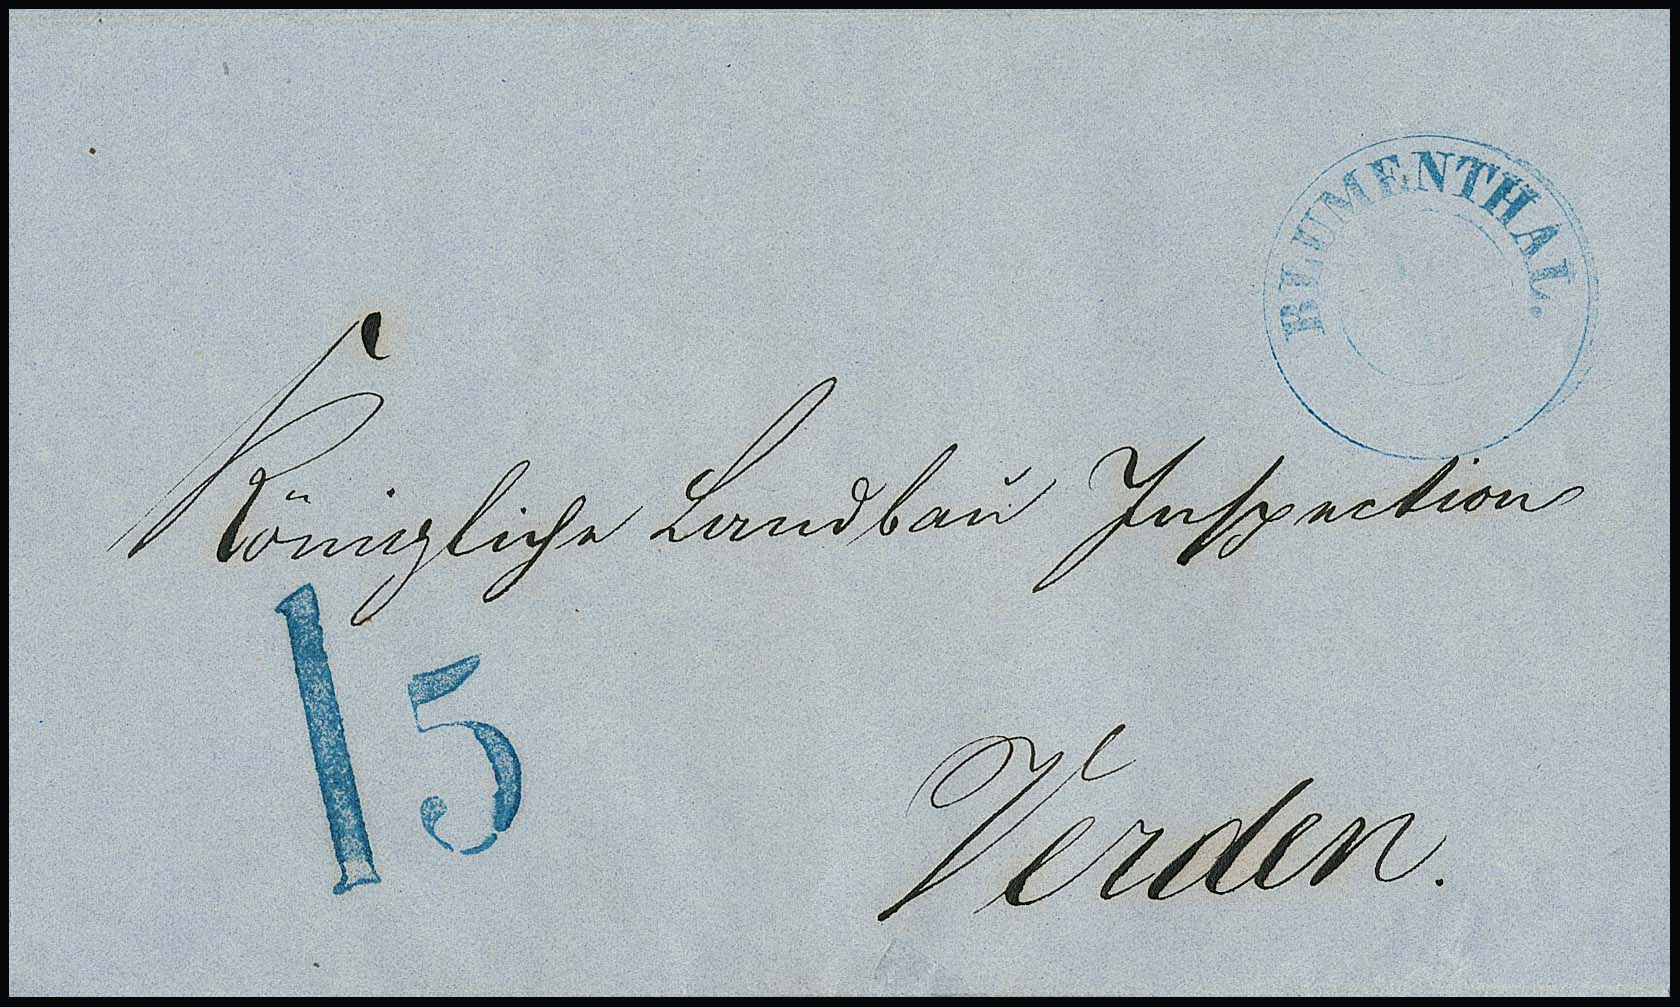 BLUMENTHAL.
Königliche Landbau Inspection
15
Verden.